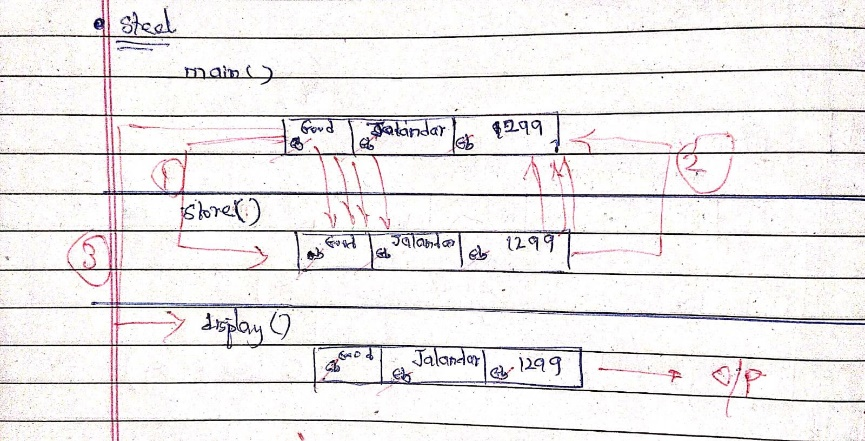 Steel
main()
Good Jalandar 1299
1 2
store()
Good Jalandar 1299
3
display()
Good Jalandar 1299 O/P